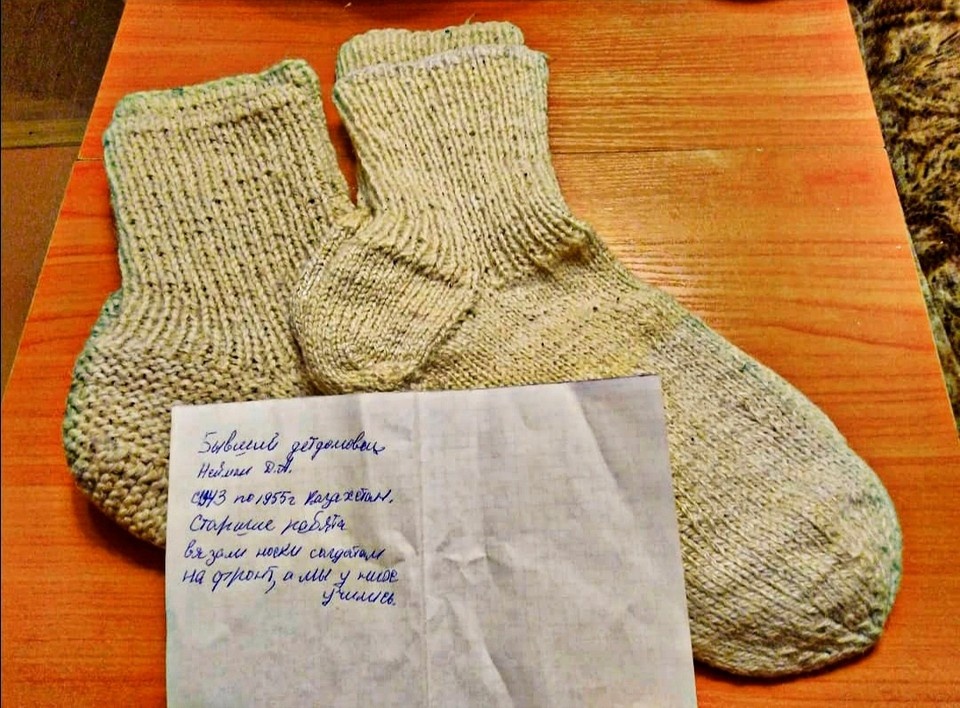 Бывший детдомовец
Нейман Д.А.
с 1943 по 1955г Казахстан.
Старшие ребята
вязали носки солдатам
на фронт, а мы у них
учились.